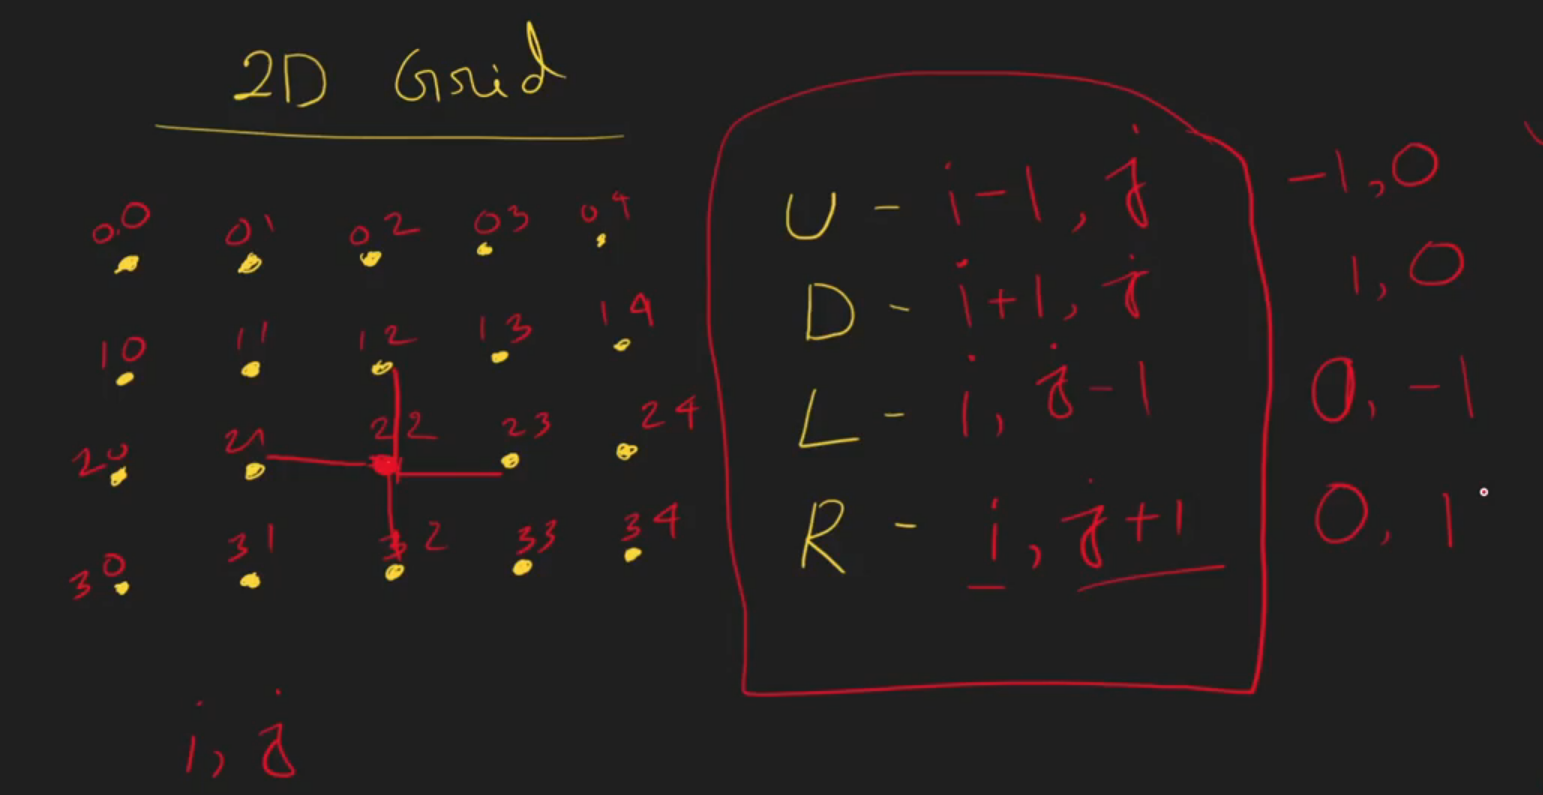 2D Grid
0,0 01 02 03 04
10 11 12 13 14
20 21 22 23 24
30 31 32 33 34
i, j
U - i-1, j
D - i+1, j
L - i, j-1
R - i, j+1
-1, 0
1, 0
0, -1
0, 1